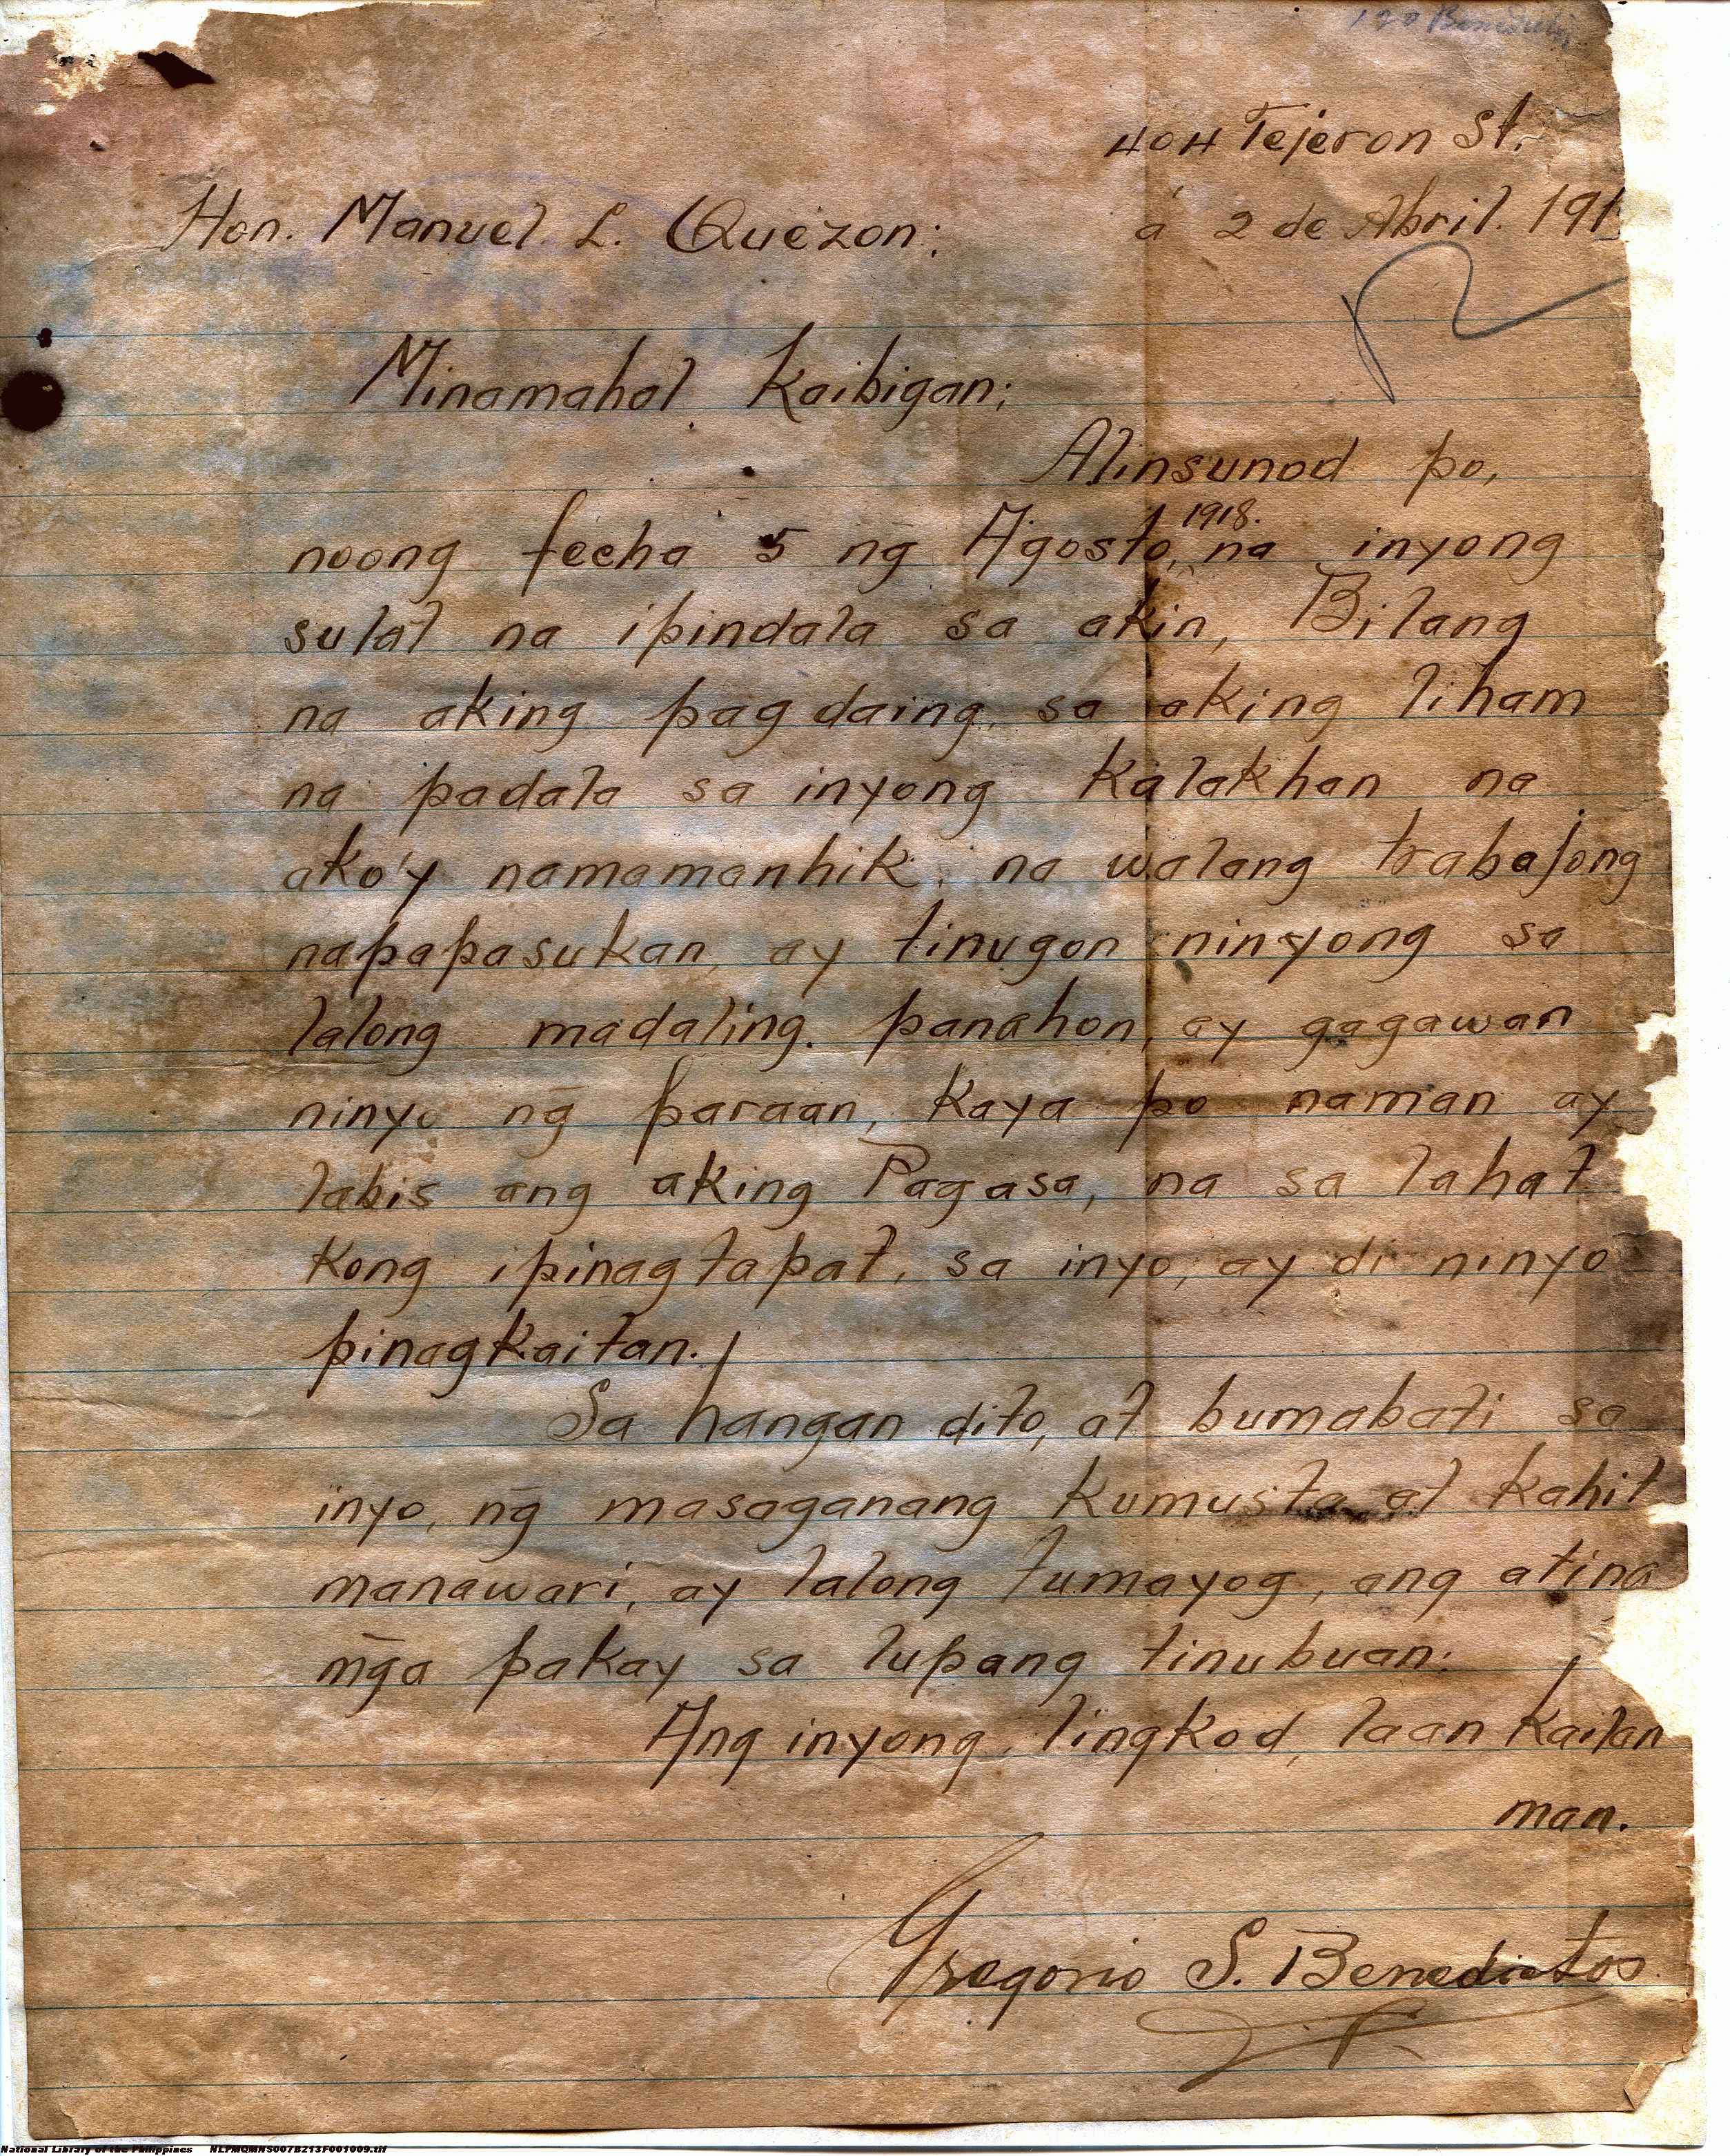 404 Tejeron St.
Hon. Manuel L. Quezon: á 2 de Abril. 191
Minamahal Kaibigan;
Alinsunod po,
noong fecha 5 ng̃ Agosto, 1918. na inyong
sulat na ipindala sa akin, Bilang
na aking pagdaing, sa aking liham
na padala sa inyong Kalakhan na
ako'y namamanhik, na walang trabajong
napapasukan, ay tinugon ninyong sa
lalong madaling. panahon, ay gagawan
ninyo ng̃ paraan, Kaya po naman ay
labis ang aking Pagasa, na sa lahat
Kong ipinagtapat, sa inyo, ay di ninyo
pinagkaitan./
Sa hangan dito, at bumabati sa
inyo, ng̃ masaganang Kumusta at Kahit
manawari, ay lalong tumayog, ang atina
mg̃a pakay sa lupang tinubuan:
Ang inyong, lingkod, laan Kailan
man.
Gregorio S. Benedictos
National Library of the Philippines NLPMQMNS007B213F001009.tif